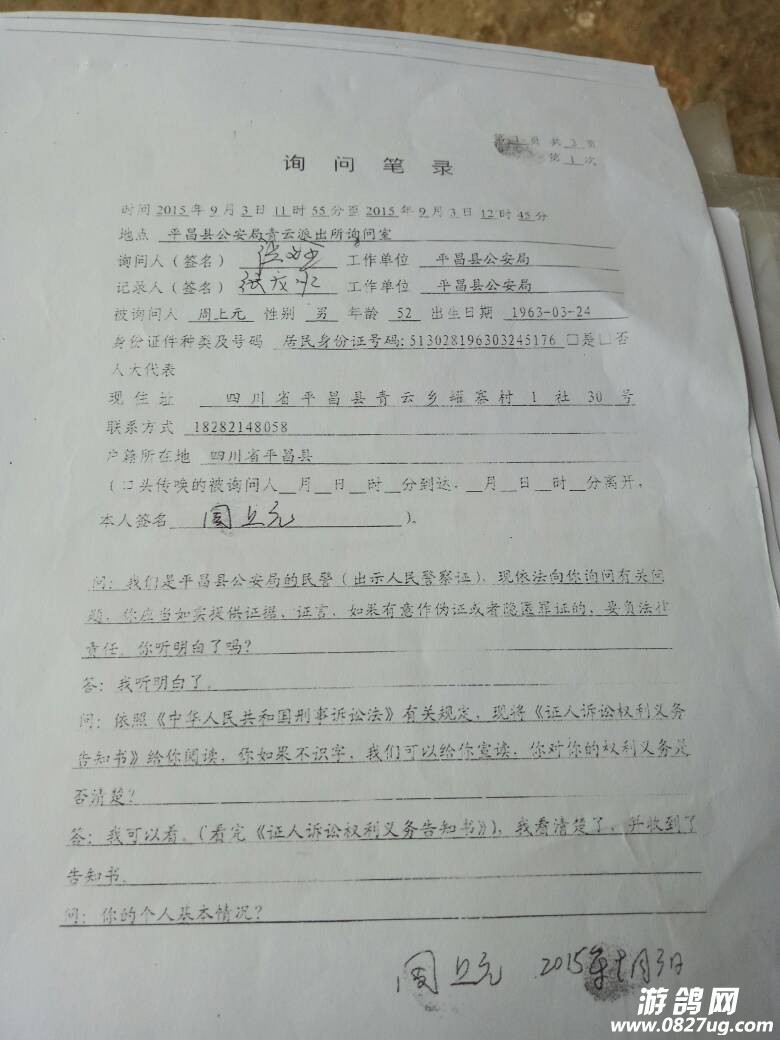 第 1 页 共 3 页
询问笔录
第 1 次
时间 2015 年 9 月 3 日 11 时 55 分至 2015 年 9 月 3 日 12 时 45 分
地点 平昌县公安局青云派出所询问室
询问人（签名） 工作单位 平昌县公安局
记录人（签名） 工作单位 平昌县公安局
被询问人 周上元 性别 男 年龄 52 出生日期 1963-03-24
身份证件种类及号码 居民身份证号码:513028196303245176 □是□否
人大代表
现住址 四川省平昌县青云乡罐寨村 1 社 30 号
联系方式 18282148058
户籍所在地 四川省平昌县
（口头传唤的被询问人__月__日__时__分到达，__月__日__时__分离开，
本人签名 周上元 ）。
问：我们是平昌县公安局的民警（出示人民警察证），现依法向你询问有关问
题，你应当如实提供证据、证言，如果有意作伪证或者隐匿罪证的，要负法律
责任。你听明白了吗？
答：我听明白了。
问：依照《中华人民共和国刑事诉讼法》有关规定，现将《证人诉讼权利义务
告知书》给你阅读，你如果不识字，我们可以给你宣读，你对你的权利义务是
否清楚？
答：我可以看。（看完《证人诉讼权利义务告知书》），我看清楚了，并收到了
告知书。
问：你的个人基本情况？
周上元 2015年 月3日
游鸽网
www.0827ug.com